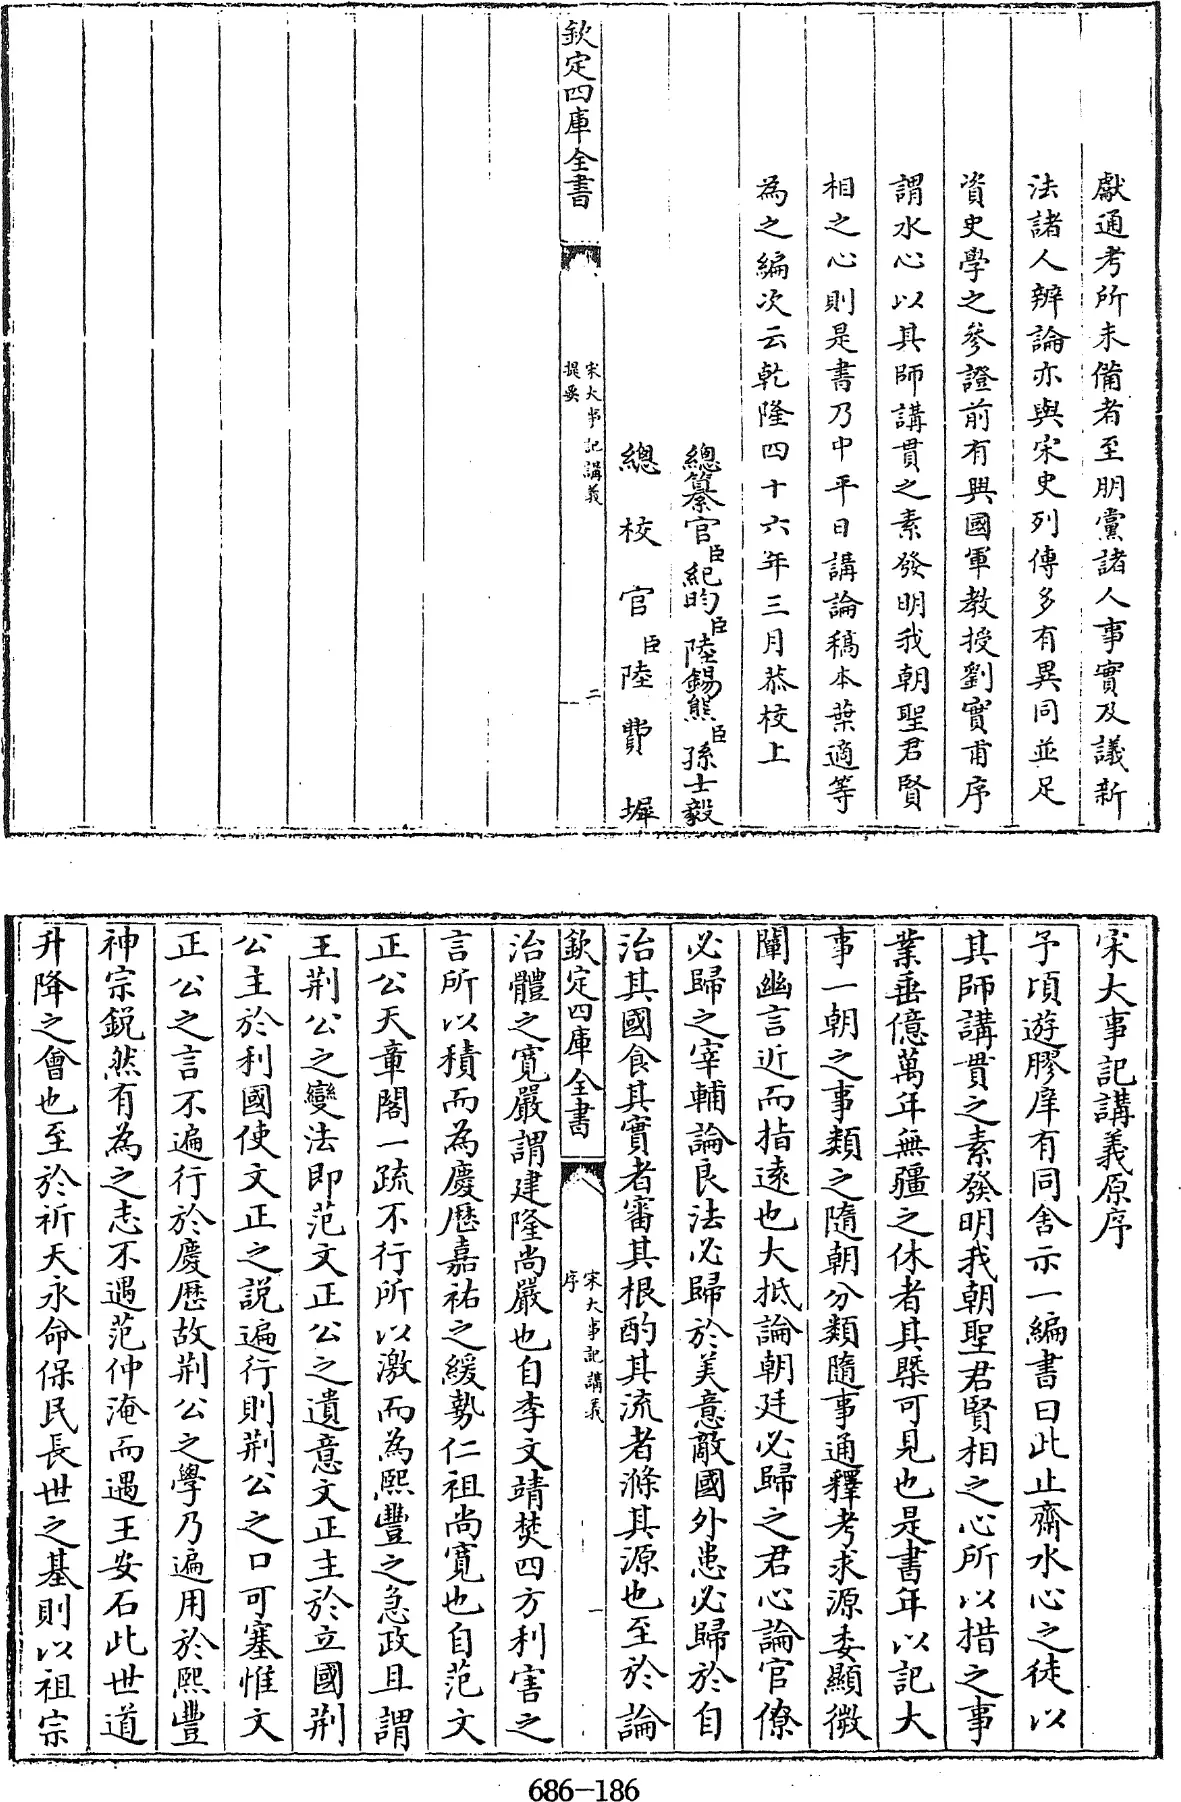 獻通考所未備者至朋黨諸人事實及議新
法諸人辨論亦與宋史列傳多有異同並足
資史學之參證前有興國軍教授劉實甫序
謂水心以其師講貫之素發明我朝聖君賢
相之心則是書乃中平日講論稿本葉適等
為之編次云乾隆四十六年三月恭校上
總纂官臣紀昀臣陸錫熊臣孫士毅
總校官臣陸費墀
欽定四庫全書
宋大事記講義
提要
二
宋大事記講義原序
予頃遊膠庠有同舍示一編書曰此止齋水心之徒以
其師講貫之素發明我朝聖君賢相之心所以措之事
業垂億萬年無疆之休者其槩可見也是書年以記大
事一朝之事類之隨朝分類隨事通釋考求源委顯微
闡幽言近而指遠也大抵論朝廷必歸之君心論官僚
必歸之宰輔論良法必歸於美意敵國外患必歸於自
治其國食其實者審其根酌其流者滌其源也至於論
欽定四庫全書
宋大事記講義
序
一
治體之寛嚴謂建隆尚嚴也自李文靖焚四方利害之
言所以積而為慶厯嘉祐之緩勢仁祖尚寛也自范文
正公天章閣一疏不行所以激而為熙豐之急政且謂
王荆公之變法即范文正公之遺意文正主於立國荆
公主於利國使文正之説遍行則荆公之口可塞惟文
正公之言不遍行於慶厯故荆公之學乃遍用於熙豐
神宗鋭然有為之志不遇范仲淹而遇王安石此世道
升降之會也至於祈天永命保民長世之基則以祖宗
686-186